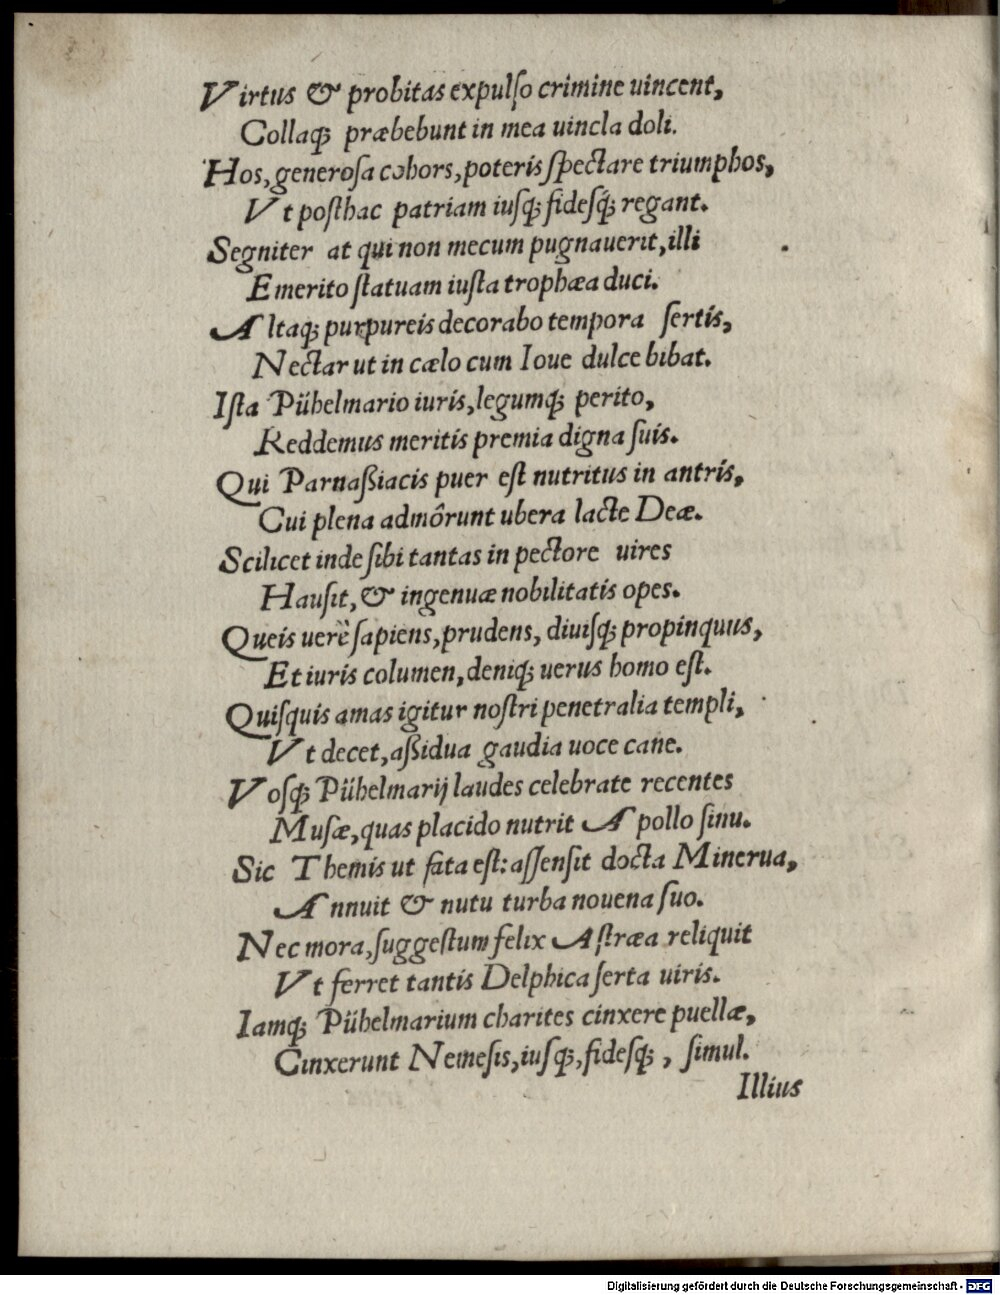 Virtus & probitas expulſo crimine uincent,
Collaq́; præbebunt in mea uincla doli.
Hos, generoſa cohors, poteris ſpectare triumphos,
Vt poſthac patriam iuſq́; fideſq́; regant.
Segniter at qui non mecum pugnauerit, illi
Emerito ſtatuam iuſta trophæa duci.
Altaq́; purpureis decorabo tempora ſertis,
Nectar ut in cælo cum Ioue dulce bibat.
Iſta Pühelmario iuris, legumq́; perito,
Reddemus meritis premia digna ſuis.
Qui Parnaßiacis puer eſt nutritus in antris,
Cui plena admôrunt ubera lacte Deæ.
Scilicet inde ſibi tantas in pectore uires
Hauſit, & ingenuæ nobilitatis opes.
Queis uerè ſapiens, prudens, diuiſq́; propinquus,
Et iuris columen, deniq́; uerus homo eſt.
Quiſquis amas igitur noſtri penetralia templi,
Vt decet, aßidua gaudia uoce cane.
Voſq́; Pühelmarij laudes celebrate recentes
Muſæ, quas placido nutrit Apollo ſinu.
Sic Themis ut fata eſt: aſſenſit docta Minerua,
Annuit & nutu turba nouena ſuo.
Nec mora, ſuggeſtum felix Aſtræa reliquit
Vt ferret tantis Delphica ſerta uiris.
Iamq́; Pühelmarium charites cinxere puellæ,
Cinxerunt Nemeſis, iuſq́;, fideſq́; , ſimul.
Illius
Digitalisierung gefördert durch die Deutsche Forschungsgemeinschaft - DFG